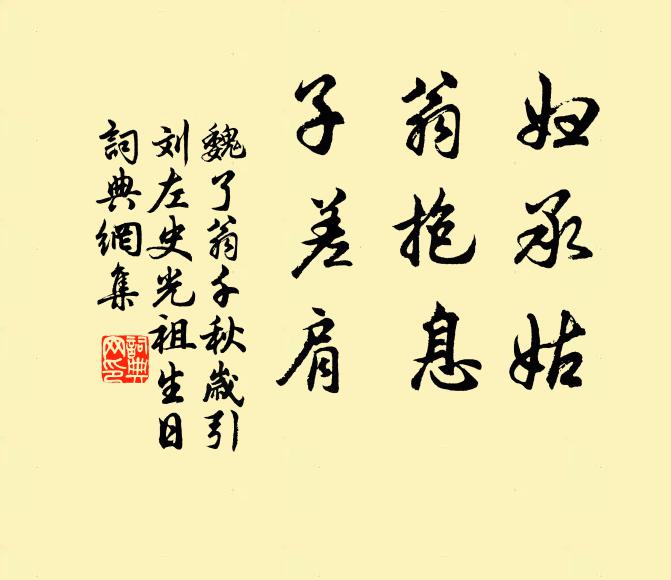 妇承姑
翁抱息
子差肩
魏了翁千秋歲引
刘左史光祖生日
詞典網集
詞典網印